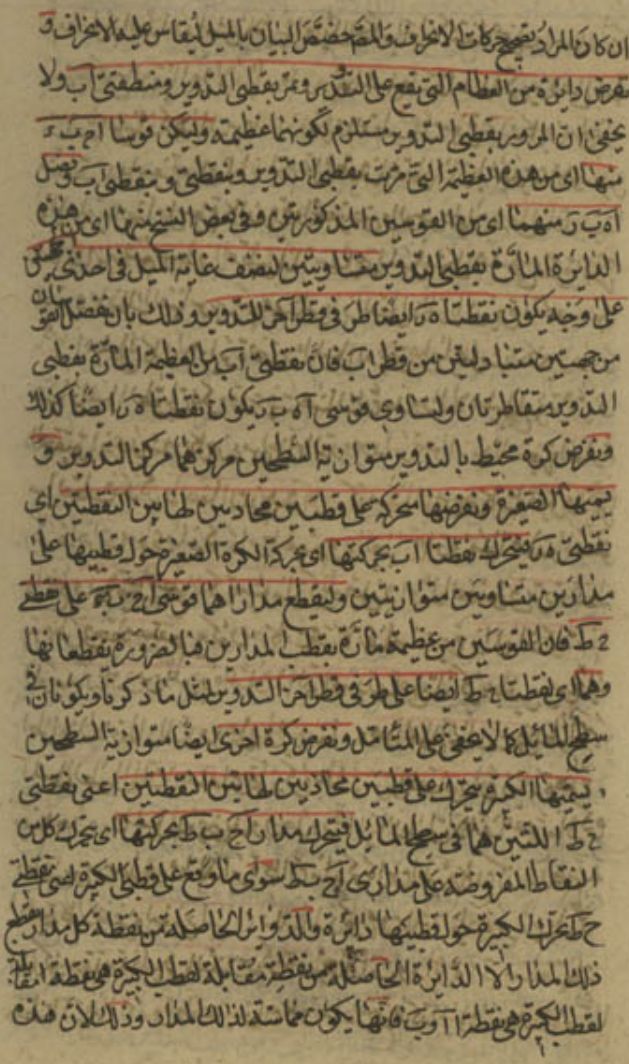 ان كان المراد تصحيح حركات الانحراف والمص خصص البيان بالميل ليقاس عليه الانحراف و
نفرض دائرة من العظام التي يقع على التدوير وتمر بقطبي التدوير ومنطقتي آب ولا
يخفى ان المرور بقطبي التدوير مستلزم لكونها عظيمة وليكن قوسا اح ب ء
منها اى من هذه العظيمة التي مرت بقطبي التدوير وبنقطتي آب ونفصل
آه ب ر منهما اى من القوسين المذكورتين وفي بعض النسخ منها اى من هذه
الدايرة المارة بقطبي التدوير متساويتين لنصف غاية الميل في احدى
على وجه يكون نقطتا ه ر ايضا طرفي قطر آخر للتدوير وذلك بان يفصل القوسان
من جهتين متبادلتين من قطر اب فان نقطتي آب من العظيمة المارة بقطبي
التدوير متقاطرتان ولتساوى قوسى آه ب ر يكون نقطتا ه ر ايضا كذلك
ونفرض كرة محيط بالتدوير متوازية السطحين مركزهما مركز التدوير و
يسميها الصغيرة ونفرضها متحركة على قطبين محاذيين لهاتين النقطتين اى
نقطتى ه ر فيتحرك نقطتا آب بحركتها اى بحركة الكرة الصغيرة حول قطبيها على
مدارين متساويين متوازيتين وليقطع مداراهما قوسى اح ب ء على نقطتي
ح ط فان القوسين من عظيمة مارة بقطب المدارين فبالضرورة يقطعانها
وهما اى نقطتا ح ط ايضا على طرفي قطر آخر للتدوير لمثل ما ذكرنا ويكونان في
سطح المايل كما لا يخفى على المتأمل ونفرض كرة اخرى ايضا متوازية السطحين
يسميها الكبيرة يتحرك على قطبين محاذيين لهاتين النقطتين اعنى نقطتى
ح ط اللتين هما في سطح المايل فيتحرك مدارا اح ب ط بحركتها اى يتحرك كل من
النقاط المفروضة على مدارى اح ب ط سوى ما وقع على قطبي الكبيرة اعنى نقطتي
ح ط بحركة الكبيرة حول قطبيها دائرة والدواير الحاصلة من نقطة كل مدار يقطع
ذلك المدار الا الدايرة الحاصلة من نقطة مقابلة لقطب الكبيرة هي نقطة
لقطب الكبيرة هي نقطة آ او ب فانها يكون مماسة لذلك المدار وذلك لان هذه